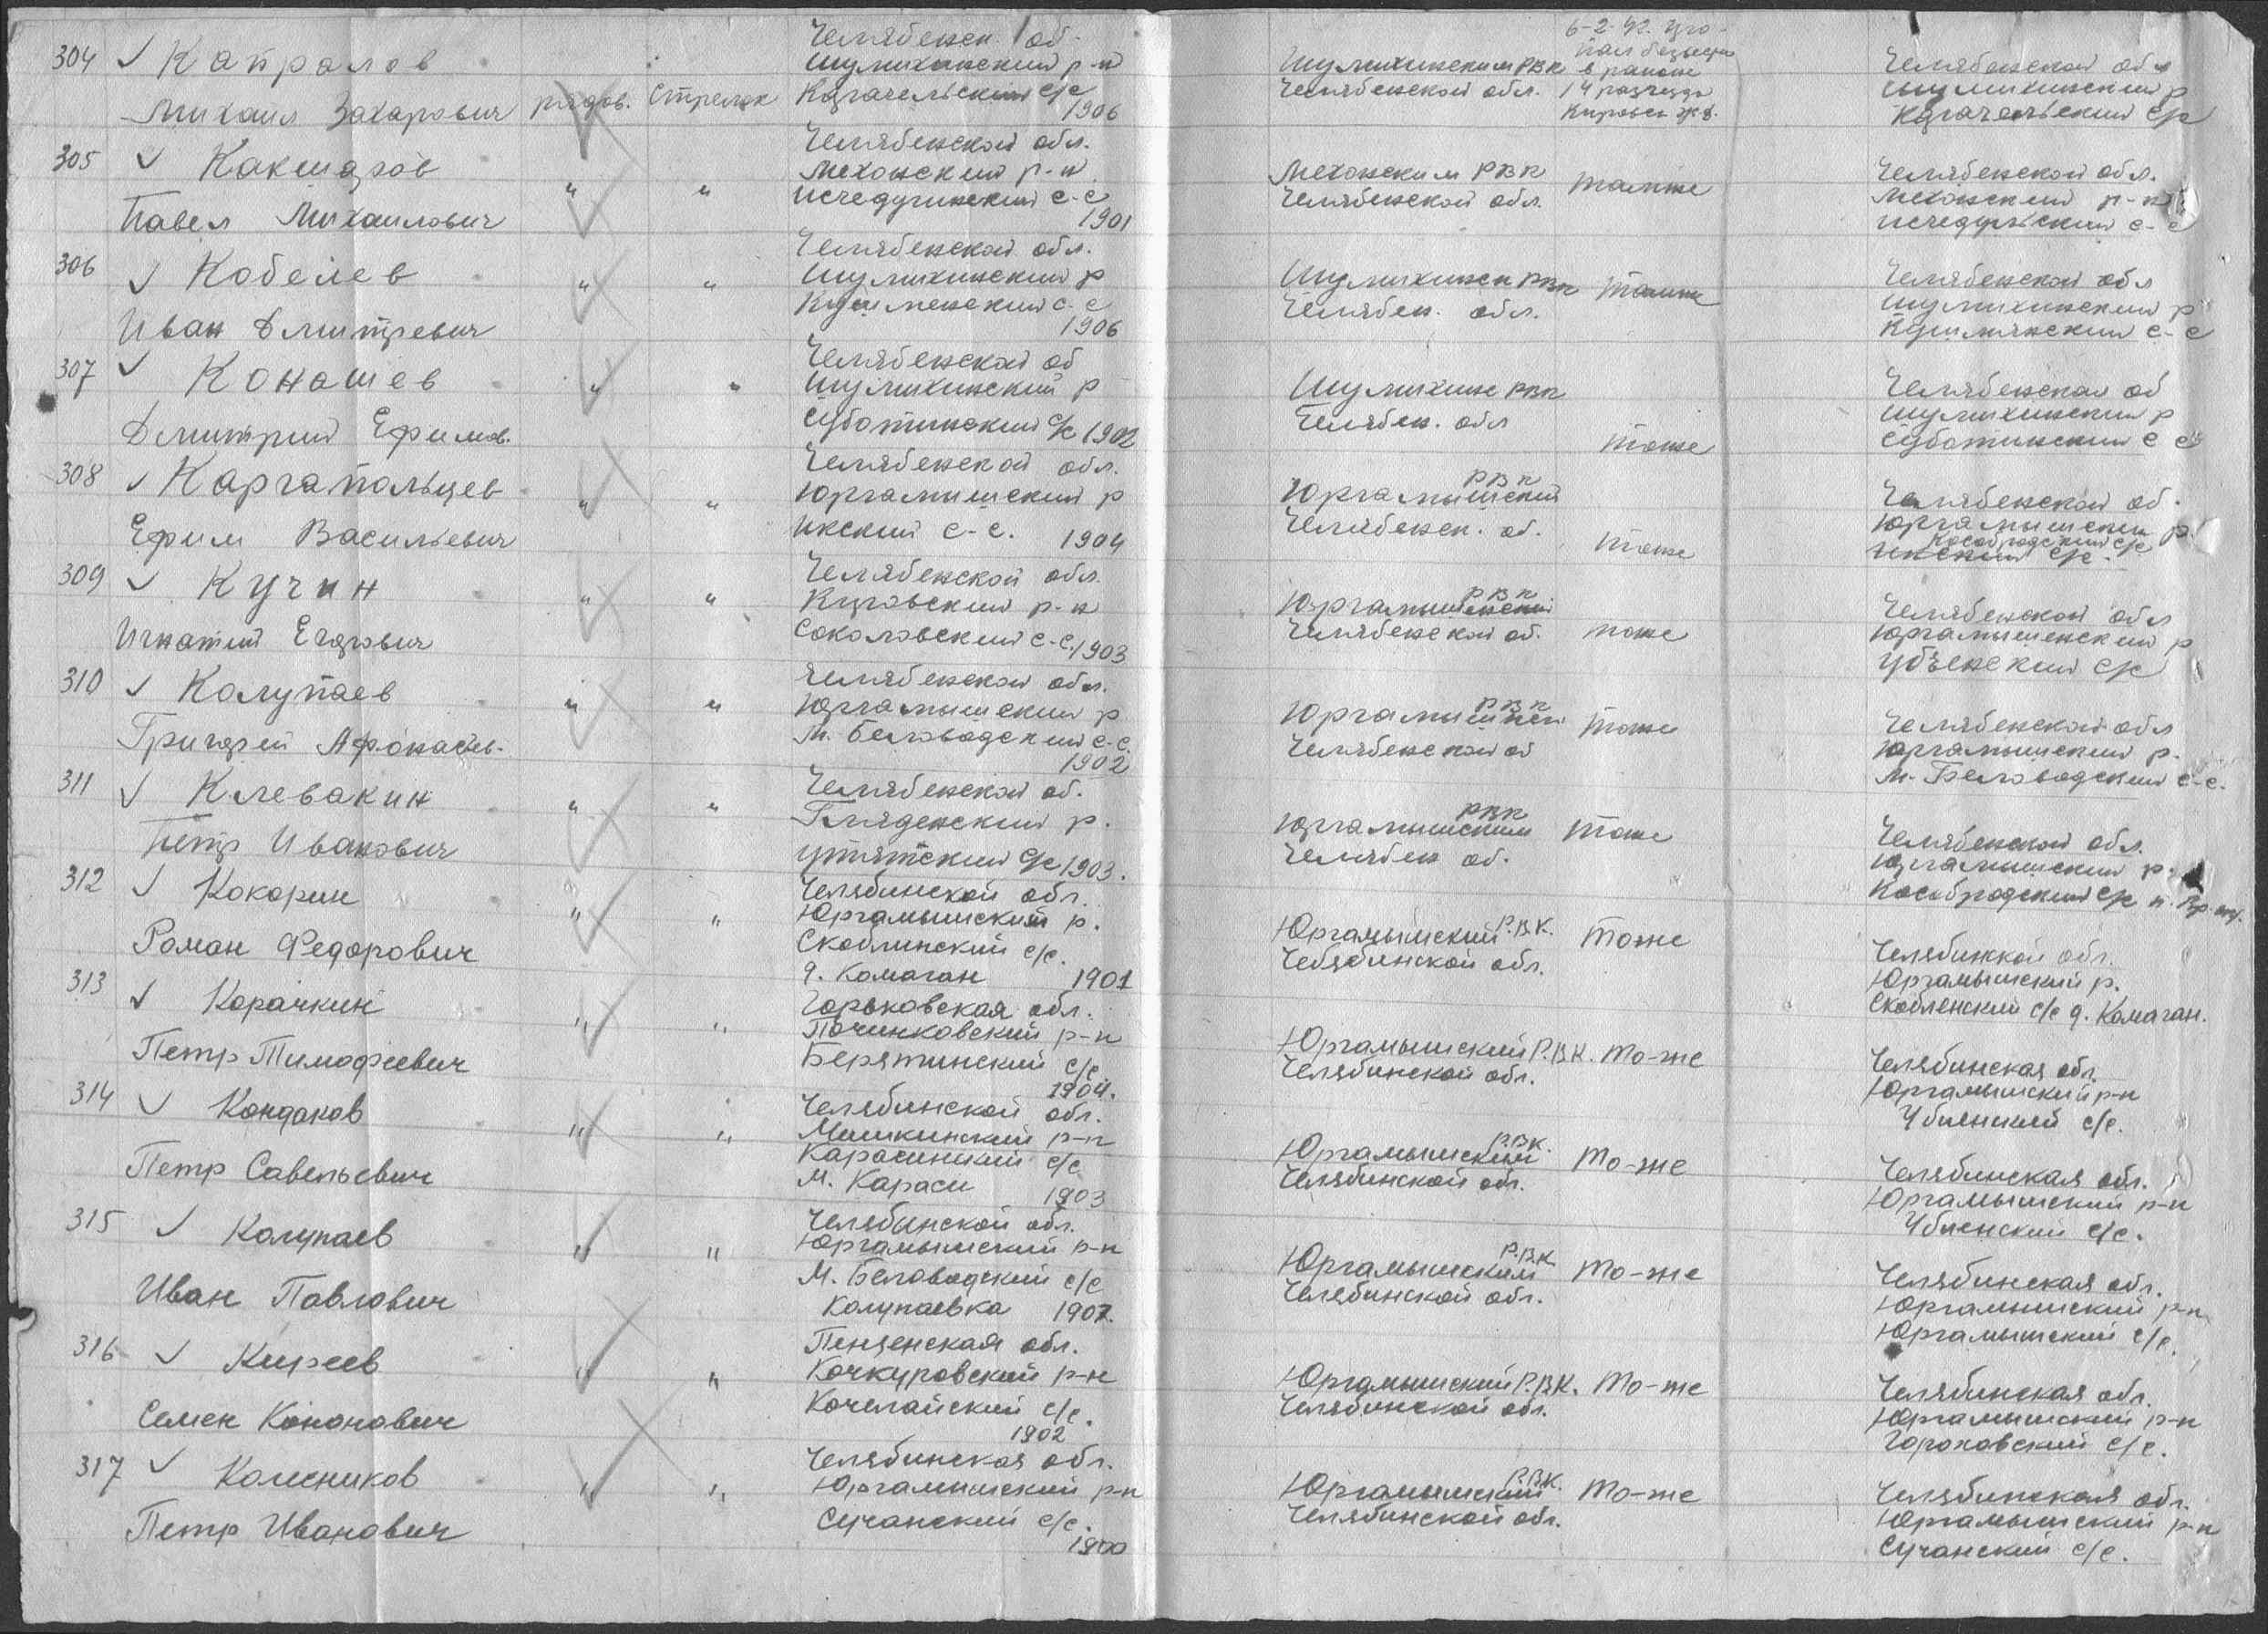 304 ✓ Капралов
Михаил Захарович рядов. Стрелок
Челябенск. об-
Шумихинский р-н
Каргачельский с/с
1906
Шумихинским РВК
Челябенской обл.
6-2-42. про-
пал безвести
в районе
14 разъезда
Кировск ж.д.
Челябенской обл
Шумихинский р
305 ✓ Какшаров
Павел Михаилович " "
Челябенской обл.
Мехонский р-н
1901
Мехонским РВК
Челябенской обл.
тамже
Челябенской обл.
Мехонский р-н
306 ✓ Кобелев
Иван Дмитревич " "
Челябенской обл.
Шумихинский р
1906
Шумихинск РВК
Челябен. обл.
тамже
Челябенской обл
Шумихинский р
307 ✓ Конашев
Дмитрий Ефимов. " "
Челябенской об
Шумихинский р
Суботинский с/с 1902
Шумихинс РВК
Челябен. обл
тоже
Челябенская об
Шумихинский р
Суботинский с с
308 ✓ Каргапольцев
Ефим Васильевич " "
Челябенской обл.
Юргамышский р
Икский с-с. 1904
РВК
Юргамышский
Челябенск. об.
тоже
Челябенской об.
Юргамышски р.
Кособродский с/с
Икский с/с.
309 ✓ Кучин
Игнатий Егорович " "
Челябенской обл.
Куровский р-н
Соколовский с-с. 1903
РВК
Юргамышенский
Челябенской об.
тоже
Челябенской обл
Юргамышенский р
Убъенский с/с
310 ✓ Колупаев
Григорей Афонасьев. " "
Челябенской обл.
Юргамышский р
М. Беловодский с-с.
1902
РВК
Юргамышски
Челябенской об
тоже
Челябенской обл
Юргамышский р.
М. Беловодский с-с.
311 ✓ Клевакин
Петр Иванович " "
Челябенской об.
Гляденский р.
Утятский с/с 1903.
РВК
Юргамышским
Челябен об.
тоже
Челябенской обл.
Юргамышский р.
Кособродский с/с
312 ✓ Кокорин
Роман Федорович " "
Челябинской обл.
Юргамышский р.
Скоблинский с/с.
д. Камаган 1901
Юргамышский Р.В.К.
Чебябинской обл.
тоже
Челябинкой обл.
Юргамышский р.
Скобленский с/с д. Камаган.
313 ✓ Корачкин
Петр Тимофеевич " "
Горьковская обл.
Починковский р-н
Берятинский с/с
1904.
Юргамышский Р.В.К. то-же
Челябинской обл.
Челябинская обл.
Юргамышский р-н
Убиенский с/с.
314 ✓ Кондаков
Петр Савельевич " "
Челябинской обл.
Мишкинский р-н
Карасинский с/с
М. Караси 1903
Р.В.К.
Юргамышский то-же
Челябинской обл.
Челябинская обл.
Юргамышский р-н
Убиенский с/с.
315 ✓ Колупаев
Иван Павлович " "
Челябинской обл.
Юргамышский р-н
М. Беловодский с/с
Колупаевка 1907.
Р.В.К
Юргамышский то-же
Челябинской обл.
Челябинская обл.
Юргамышский р-н
Юргамышский с/с.
316 ✓ Киреев
Семен Кононович " "
Пензенская обл.
Кочкуровский р-н
Кочелайский с/с.
1902
Юргамышский Р.В.К. то-же
Челябинской обл.
Челябинская обл.
Юргамышский р-н
Гороховский с/с.
317 ✓ Колесников
Петр Иванович " "
Челябинская обл.
Юргамышский р-н
Сучанский с/с.
1900
Р.В.К.
Юргамышский то-же
Челябинской обл.
Челябинская обл.
Юргамышский р-н
Сучанский с/с.